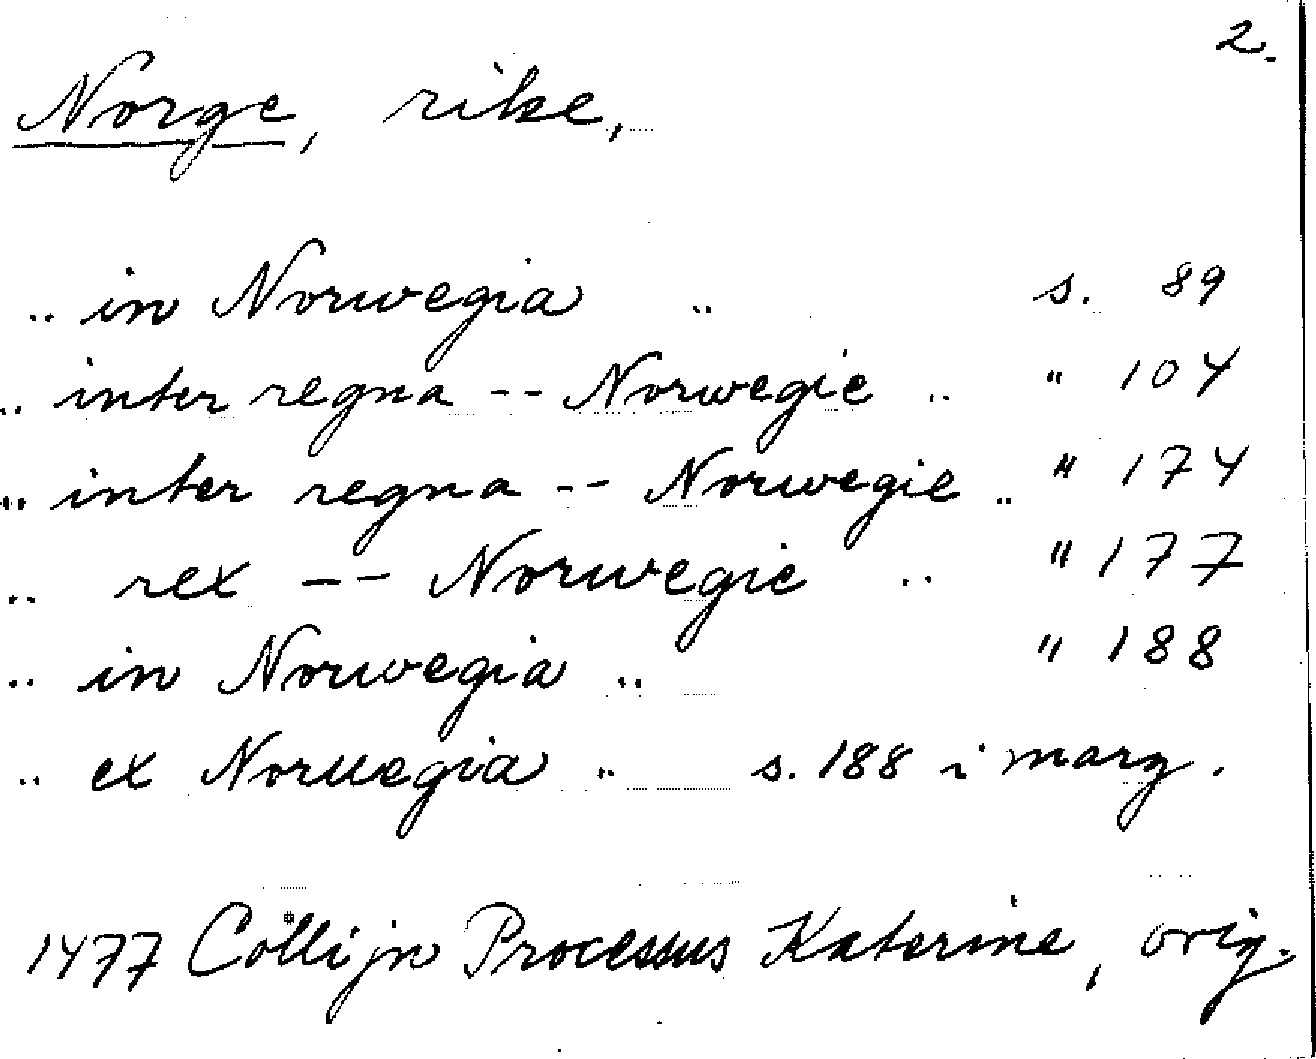 2.
Norge, rike,
.. in Norwegia .. s. 89
.. inter regna -- Norwegie .. " 104
.. inter regna -- Norwegie .. " 174
.. rex -- Norwegie .. " 177
.. in Norwegia .. " 188
.. ex Norwegia .. s. 188 i marg.
1477 Collijn Processus Katerine, orig.